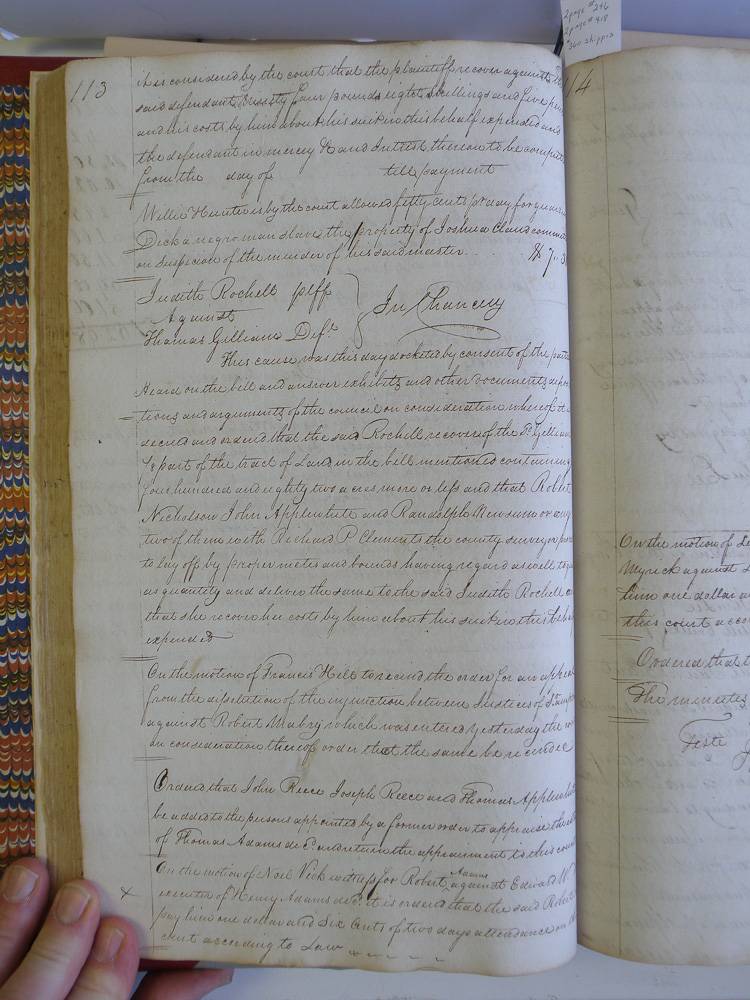 2 page # 246
2 page # 418
360 shipped
113
it is considered by the court that the plaintiff recover against the
said defendant Seventy four pounds eight shillings and five pen
and his costs by him about his suit in this behalf expended and
the defendant in mercy &c and Interest thereon to be compute
from the day of till payment
Willie Hunter is by the court allowed fifty cents pr day for guar
Dick a negro man slave the property of Joshua Claud commit
on Suspicion of the murder of his said master. $ 7.. 5
Judith Rochell plff
Against
Thomas Gilliam Deft.
In Chancery
This cause was this day docketed by consent of the part
Heard on the bill and answer exhibits and other documents depo
tions and arguments of the council on consideration whereof it is
decred and ordered that the said Rochell recover of the sd. Gilliam
part of the tract of Land in the bill mentioned containing
four hundred and eightty two acres more or less and that Robert
Nicholson John Applewhite and Randolph Newsum or any
two of them with Richard P Clements the county surveyor
to lay off by proper metes and bounds having regard as well to q
as quantity and deliver the same to the said Judith Rochell
that she recover her costs by him about his suit in this beha
expended
On the motion of Francis Hill to recind the order for an appeal
from the dissolution of the injunction between Justices of
against Robert Mabry which was entered yesterday the
on consideration thereof order that the same be recinded
Ordered that John Reece Joseph Reece and Thomas Applewhite
be added to the persons appointed by a former order to appraise the
of Thomas Adams decd. and return the appraisment to this cour
On the motion of Noel Vick witness for Robert Adams against Edward W
x executor of Henry Adams decd. it is ordered that the said Robert
pay him one dollar and Six Cents of two days attendance on
court according to Law
14
On the motion of
Myrick against
him one dollar a
this court acco
Ordered that t
The minutes
Teste